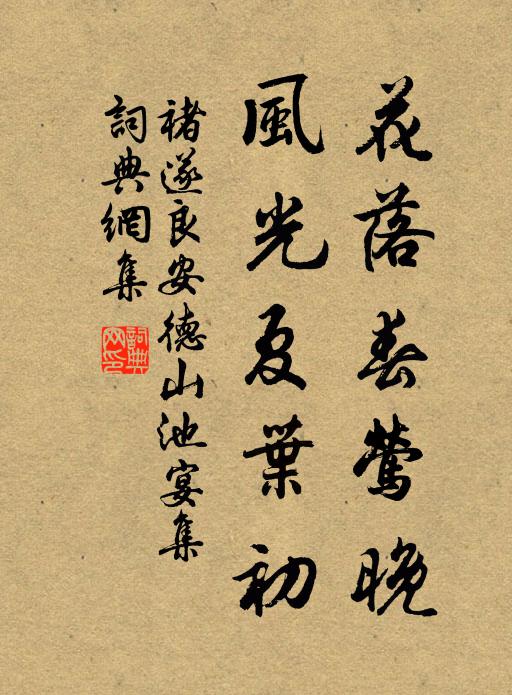 花落春鶯晚
風光夏葉初
褚遂良安德山池宴集
詞典網集
詞典網印